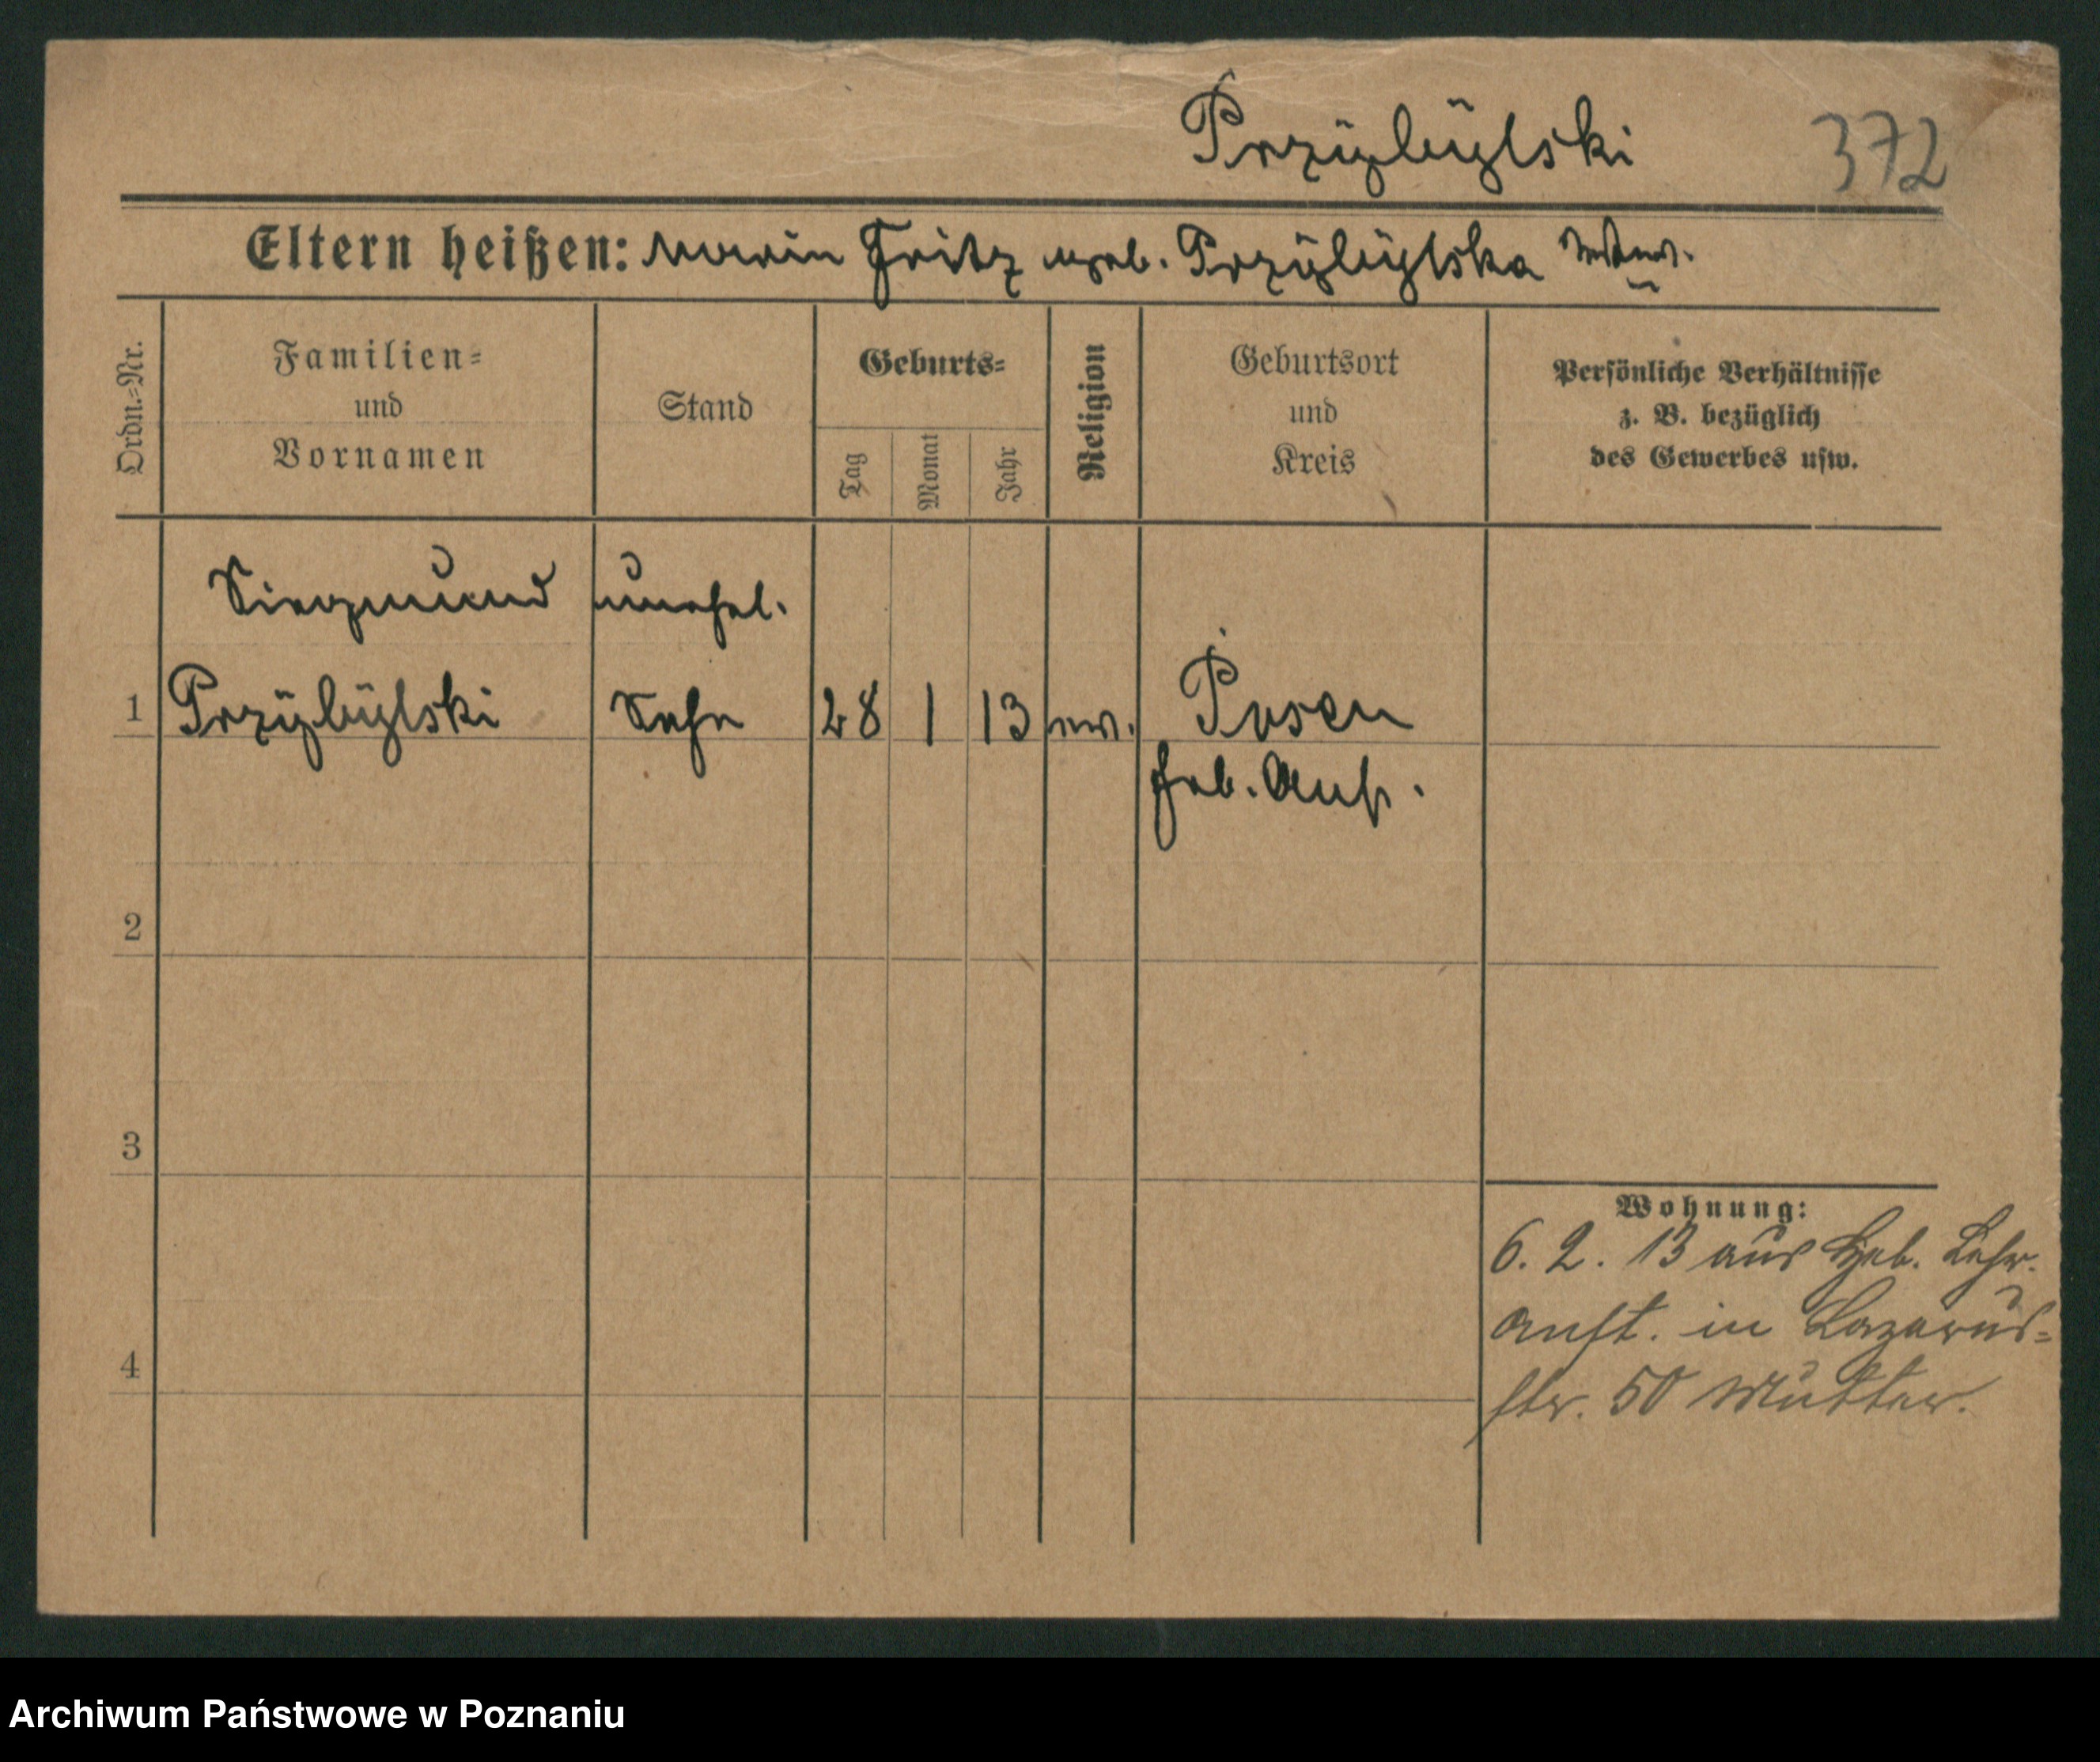 Przÿbÿlski 372
Eltern heißen: Maria Fritz geb. Przÿbÿlska
Ordn.-Nr.
Familien-
und
Vornamen
Stand
Geburts-
Tag
Monat
Jahr
Religion
Geburtsort
und
Kreis
Persönliche Verhältnisse
z. B. bezüglich
des Gewerbes usw.
Siegmund unehel.
1 Przÿbÿlski Sohn 28 1 13 ev. Posen
Heb. Anst.
2
3
Wohnung:
6. 2. 13 aus Heb. Lehr-
anst. in Lazarus-
str. 50 Mutter.
4
Archiwum Państwowe w Poznaniu